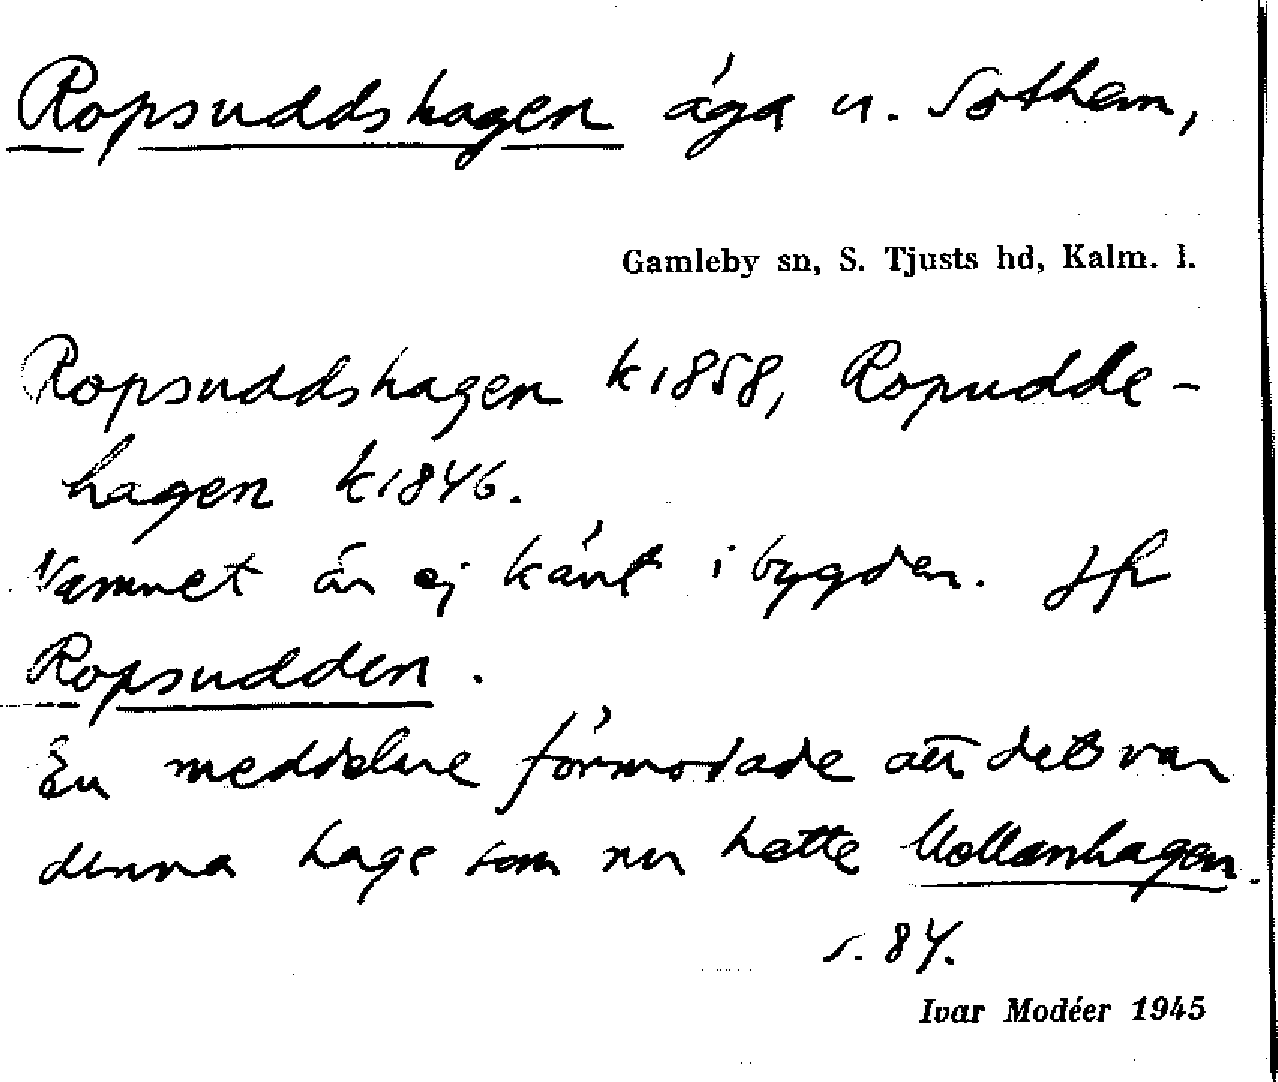 Ropsuddshagen äga u. Sothem,
Gamleby sn, S. Tjusts hd, Kalm. l.
Ropsuddshagen k 1858, Ropudde-
hagen k 1846.
Namnet är ej känt i bygden. Jfr
Ropsudden.
En meddelare förmodade att det var
denna hage som nu hette
s. 84.
Ivar Modéer 1945